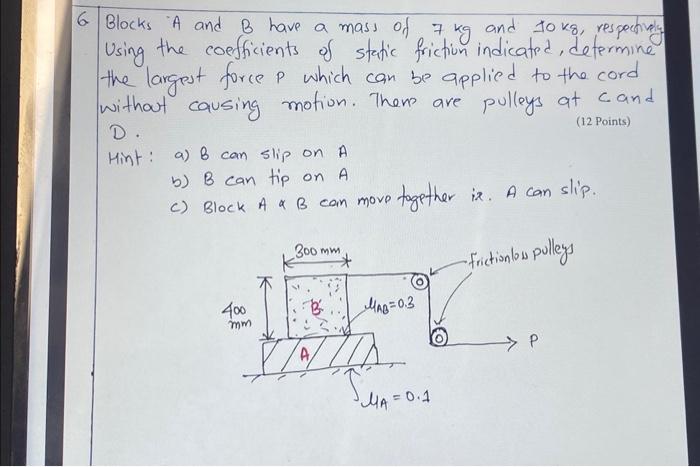 6 Blocks A and B have a mass of 7 kg and 10 kg, respectively
Using the coefficients of static friction indicated, determine
the largest force P which can be applied to the cord
without causing motion. There are pulleys at C and
D.
(12 Points)
Hint: a) B can slip on A
b) B can tip on A
c) Block A & B can move together ie. A can slip.
300 mm
frictionless pulleys
400
mm
B
μAB=0.3
P
A
μA=0.1